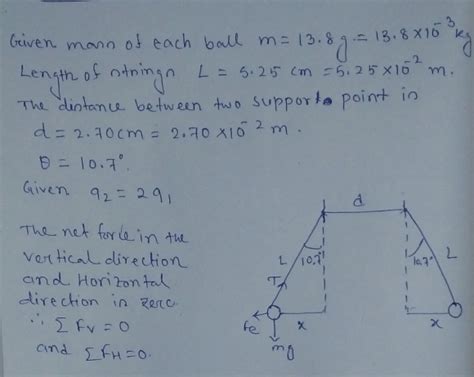 Given mass of each ball m = 13.8 g = 13.8 × 10⁻³ kg
Length of strings L = 5.25 cm = 5.25 × 10⁻² m.
The distance between two support point is
d = 2.70 cm = 2.70 × 10⁻² m.
θ = 10.7°.
Given q₂ = 2q₁
The net force in the
vertical direction
and Horizontal
direction is zero
∴ Σ Fv = 0
and Σ FH = 0.
d
L 10.7° 10.7° L
T
Fe x x
mg